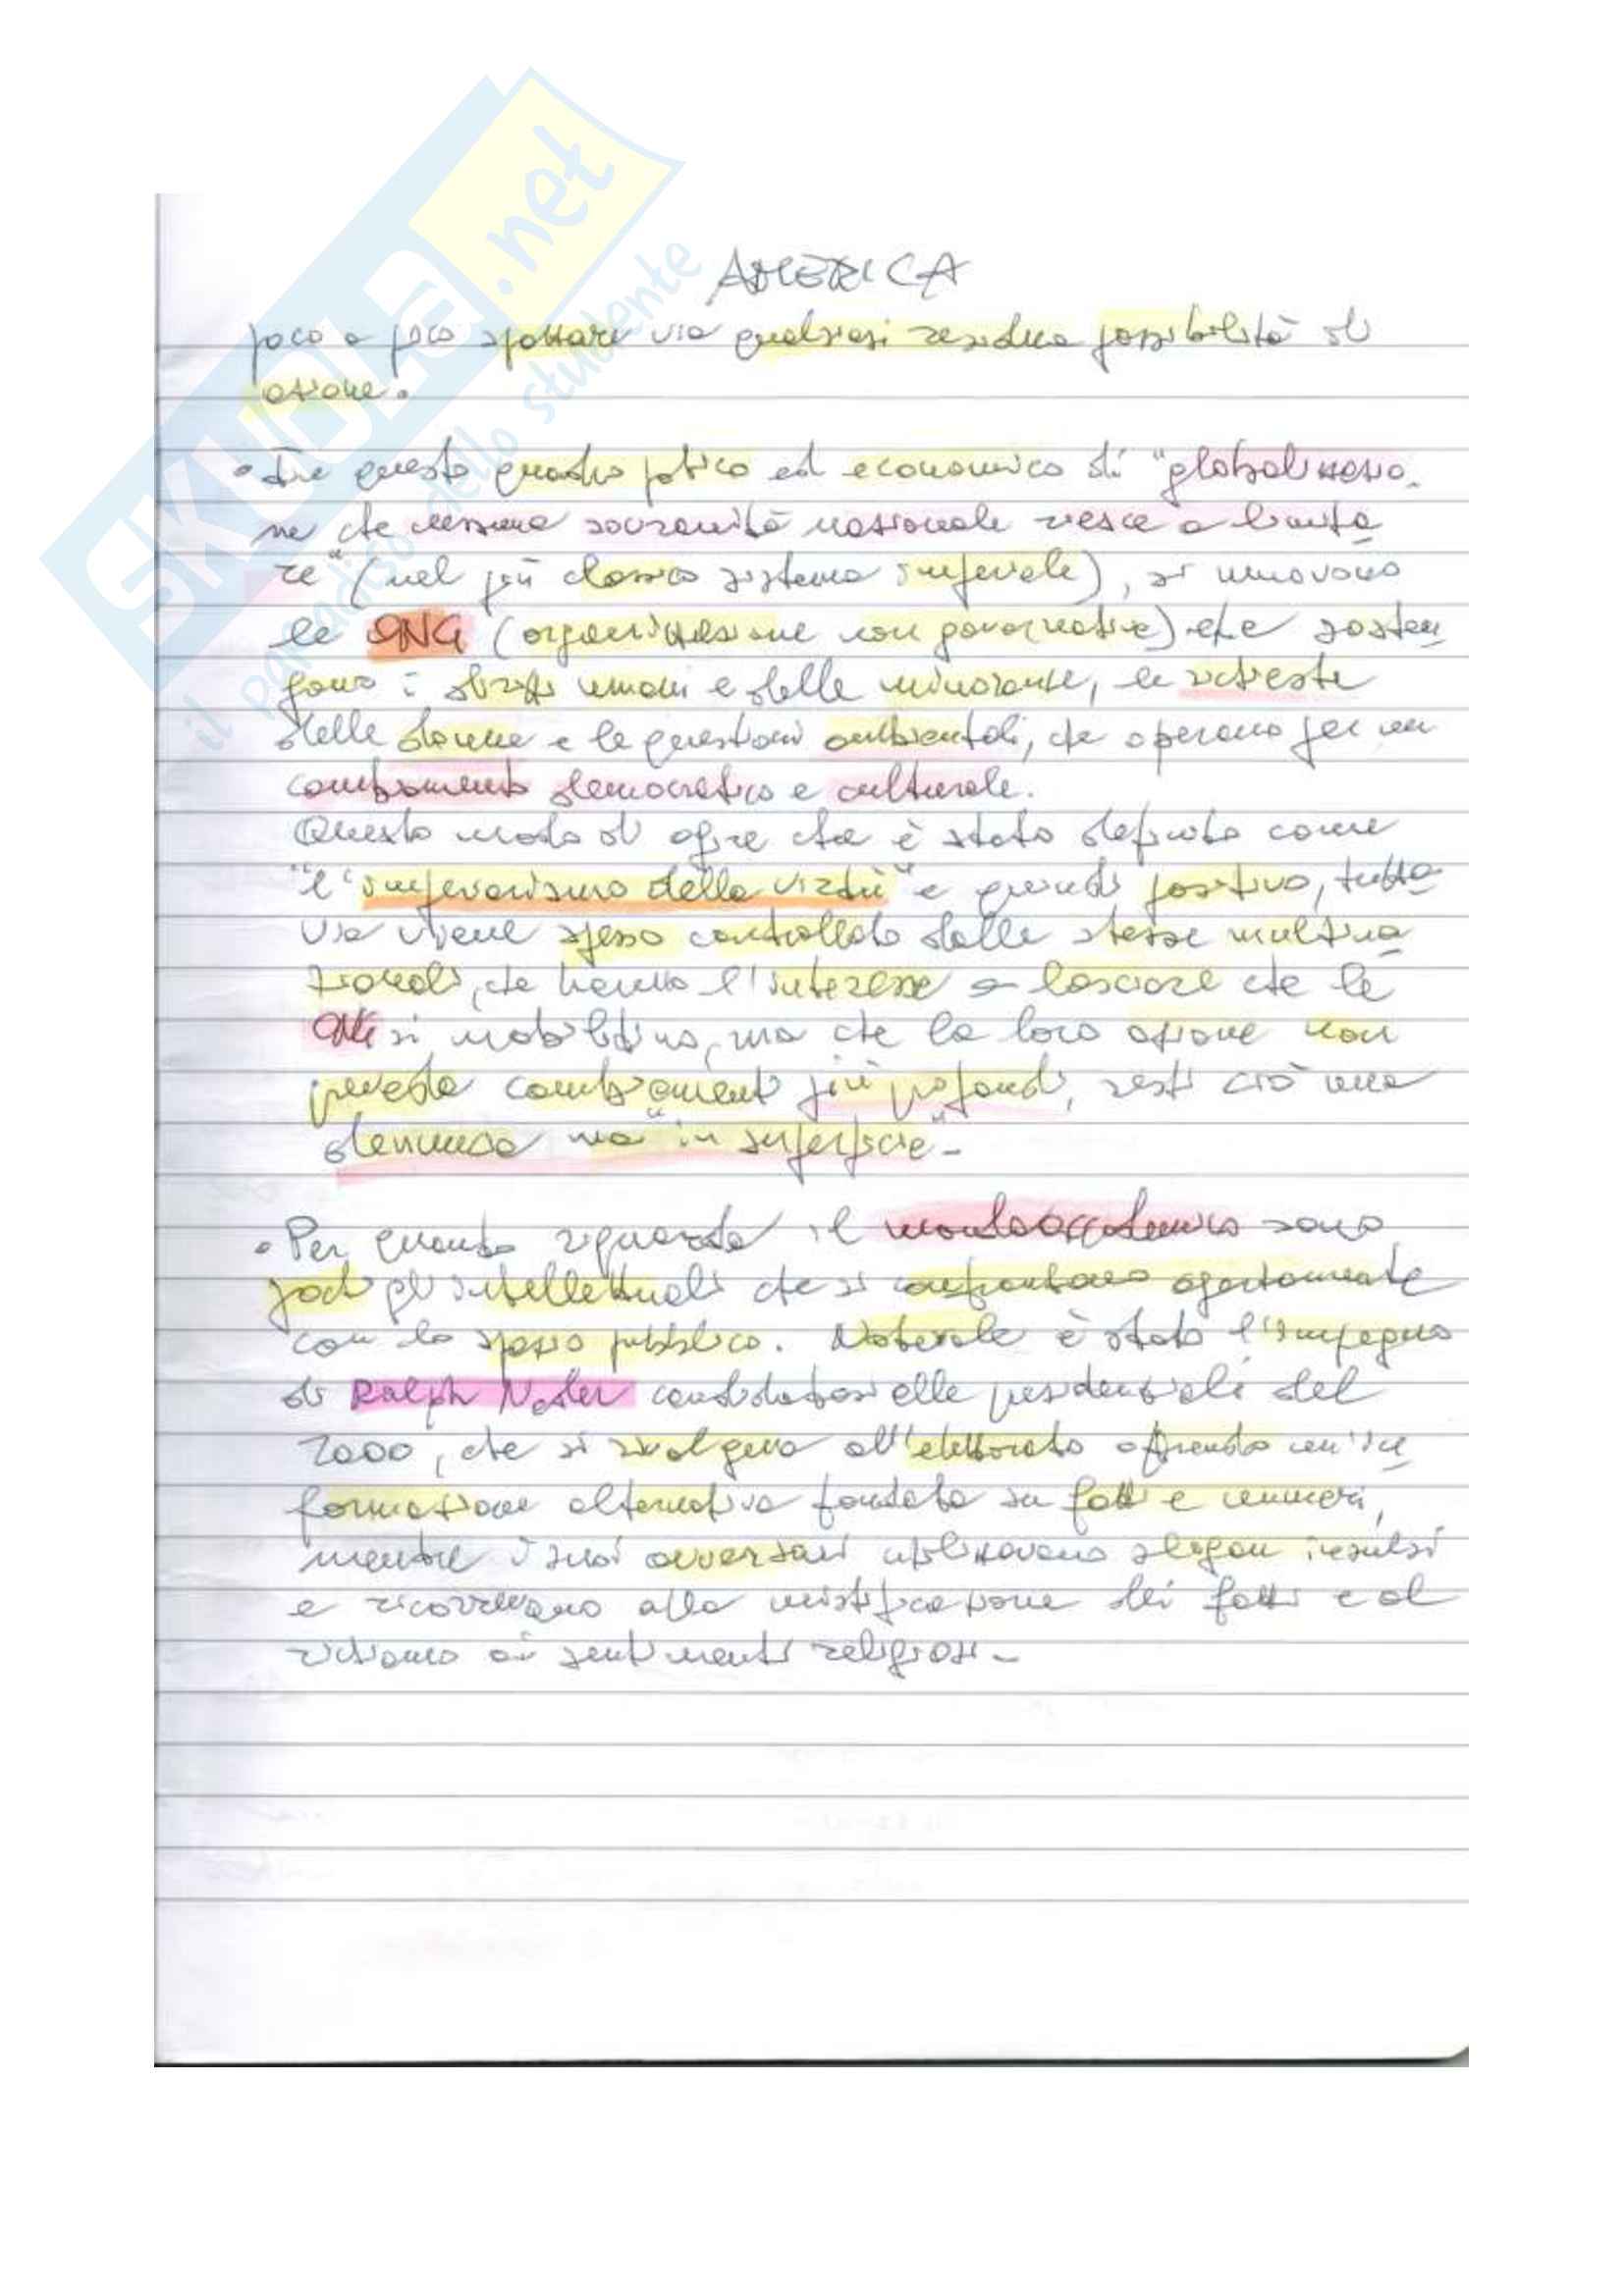 SKUOLA.net
il paradiso dello studente
AMERICA
poco a poco spazzare via qualsiasi residua possibilità di
azione.
• In questo quadro politico ed economico di "globalizzazio-
ne che nessuna sovranità nazionale riesce a limita
re" (nel più classico sistema imperiale), si muovono
le ONG (organizzazione non governative) che sosten
gono i diritti umani e delle minoranze, le richieste
delle donne e le questioni ambientali, che operano per un
cambiamento democratico e culturale.
Questo modo di agire che è stato definito come
"l'imperialismo della virtù" e quindi positivo, tutta
via viene spesso controllato dalle stesse multina
zionali, che hanno l'interesse a lasciare che le
ONG si mobilitino, ma che la loro azione non
preveda cambiamenti più profondi, resti cioè una
denuncia ma "in superficie" -
• Per quanto riguarda il mondo accademico sono
pochi gli intellettuali che si confrontano apertamente
con lo spazio pubblico. Notevole è stato l'impegno
di Ralph Nader candidatosi alle presidenziali del
2000, che si rivolgeva all'elettorato offrendo un'in
formazione alternativa fondata su fatti e numeri,
mentre i suoi avversari utilizzavano slogan insulsi
e ricorrevano alla mistificazione dei fatti e al
richiamo ai sentimenti religiosi -